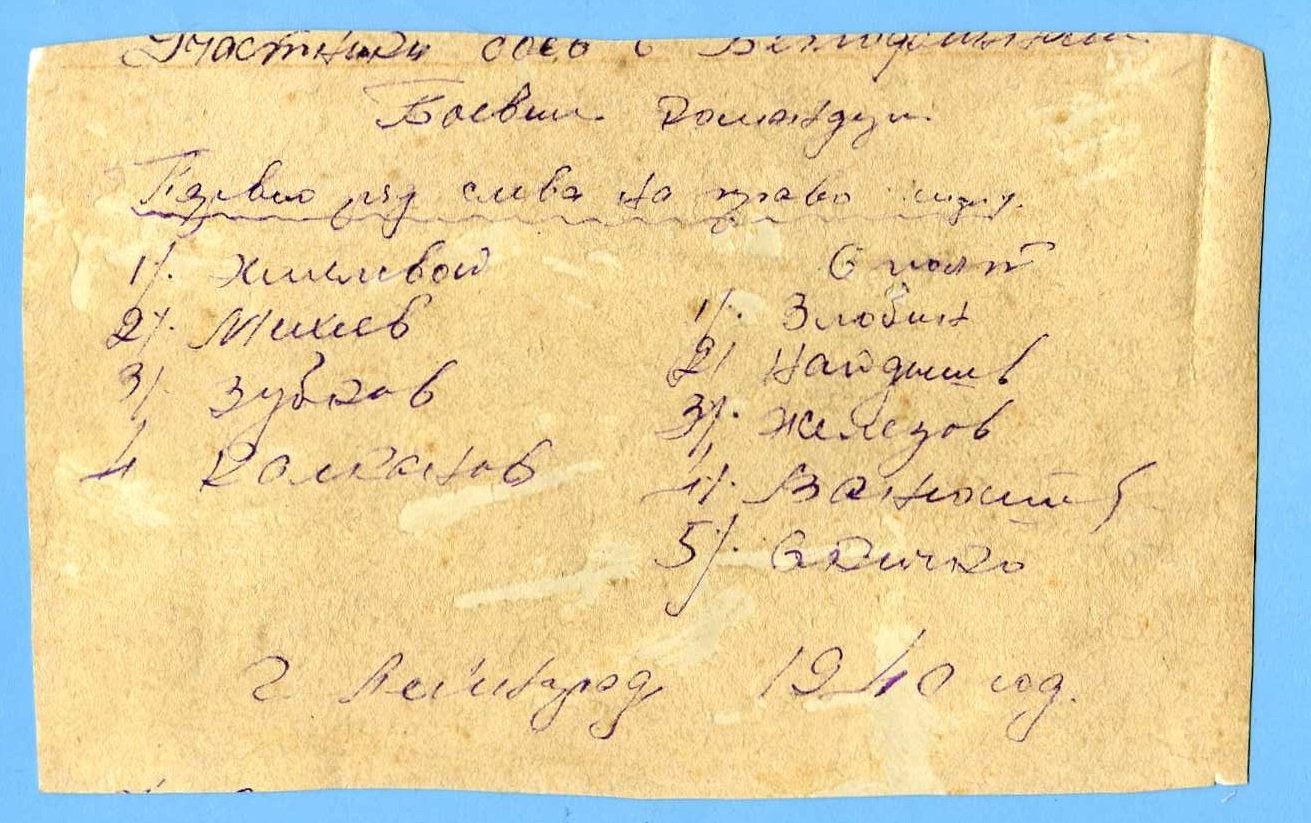 Участники боев с Белофиннами
Боевые командиры
Первый ряд слева на право сидят.
1/. Хмилевой
2/. Михеев
3/. Зубков
4 Колканов
Стоят
1/. Злобин
2/ Найдышев
3/. Железов
4/.
5/. Скичко
г. Ленинград 1940 год.